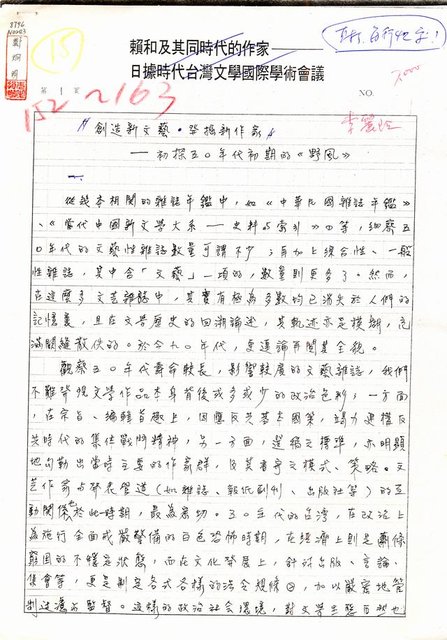 賴和及其同時代的作家——
日據時代台灣文學國際學術會議
第1頁
NO.
15
152~163
創造新文藝‧發掘新作家
——初探五○年代初期的《野風》
一
從幾本相關的雜誌年鑑中,如《中華民國雜誌年鑑》
、《當代中國新文學大系——史料與索引》等,細察五
○年代的文藝性雜誌數量可謂不少;再加上綜合性、一般
性雜誌,其中含「文藝」一項的,數量則更多了。然而,
在這麼多文藝雜誌中,其實有極為多數均已消失於人們的
記憶裏,且在文學歷史的回溯論述,其軌迹亦是模糊,充
滿闕縫散佚的。於今九○年代,更遑論再閱其全貌。
觀察五○年代壽命較長,影響較廣的文藝雜誌,我們
不難發現文學作品本身背後或多或少的政治色彩,一方面
,在宗旨、編輯旨趣上,因應反共基本國策,竭力建構反
共時代的集體戰鬥精神,另一方面,選稿之標準,亦明顯
地勾勒出當時主要的作家群,及其書寫模式、策略。文
藝作家與發表管道(如雜誌、報紙副刊、出版社等)的互
動關係於此一時期,最為密切。五○年代的台灣,在政治上
為施行全面戒嚴警備的白色恐怖時期,在經濟上則是蕭條
窮困的不穩定狀態,而在文化發展上,針對出版、言論、
集會等,更是制定各式各樣的法令規條,加以嚴密地管
制選濾與監督。這樣的政治社會環境,對文學生態自然也